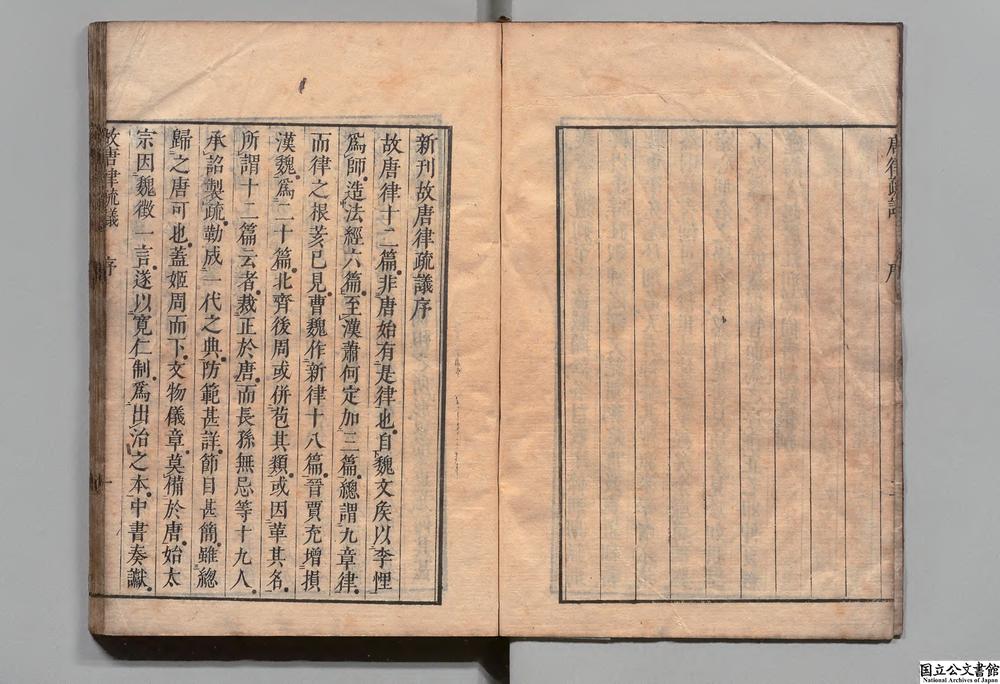 唐律疏議 序
新刊故唐律疏議序
故唐律十二篇非唐始有是律也自魏文矦以李悝
爲師造法經六篇至漢蕭何定加三篇緫謂九章律
而律之根荄已見曹魏作新律十八篇晉賈充增損
漢魏爲二十篇北齊後周或併苞其類或因革其名
所謂十二篇云者裁正於唐而長孫無忌等十九人
承詔製疏勒成一代之典防範甚詳節目甚簡雖緫
歸之唐可也蓋姬周而下文物儀章莫備於唐始太
宗因魏徵一言遂以寬仁制爲出治之本中書奏讞
故唐律疏議 序 一
国立公文書館
National Archives of Japan